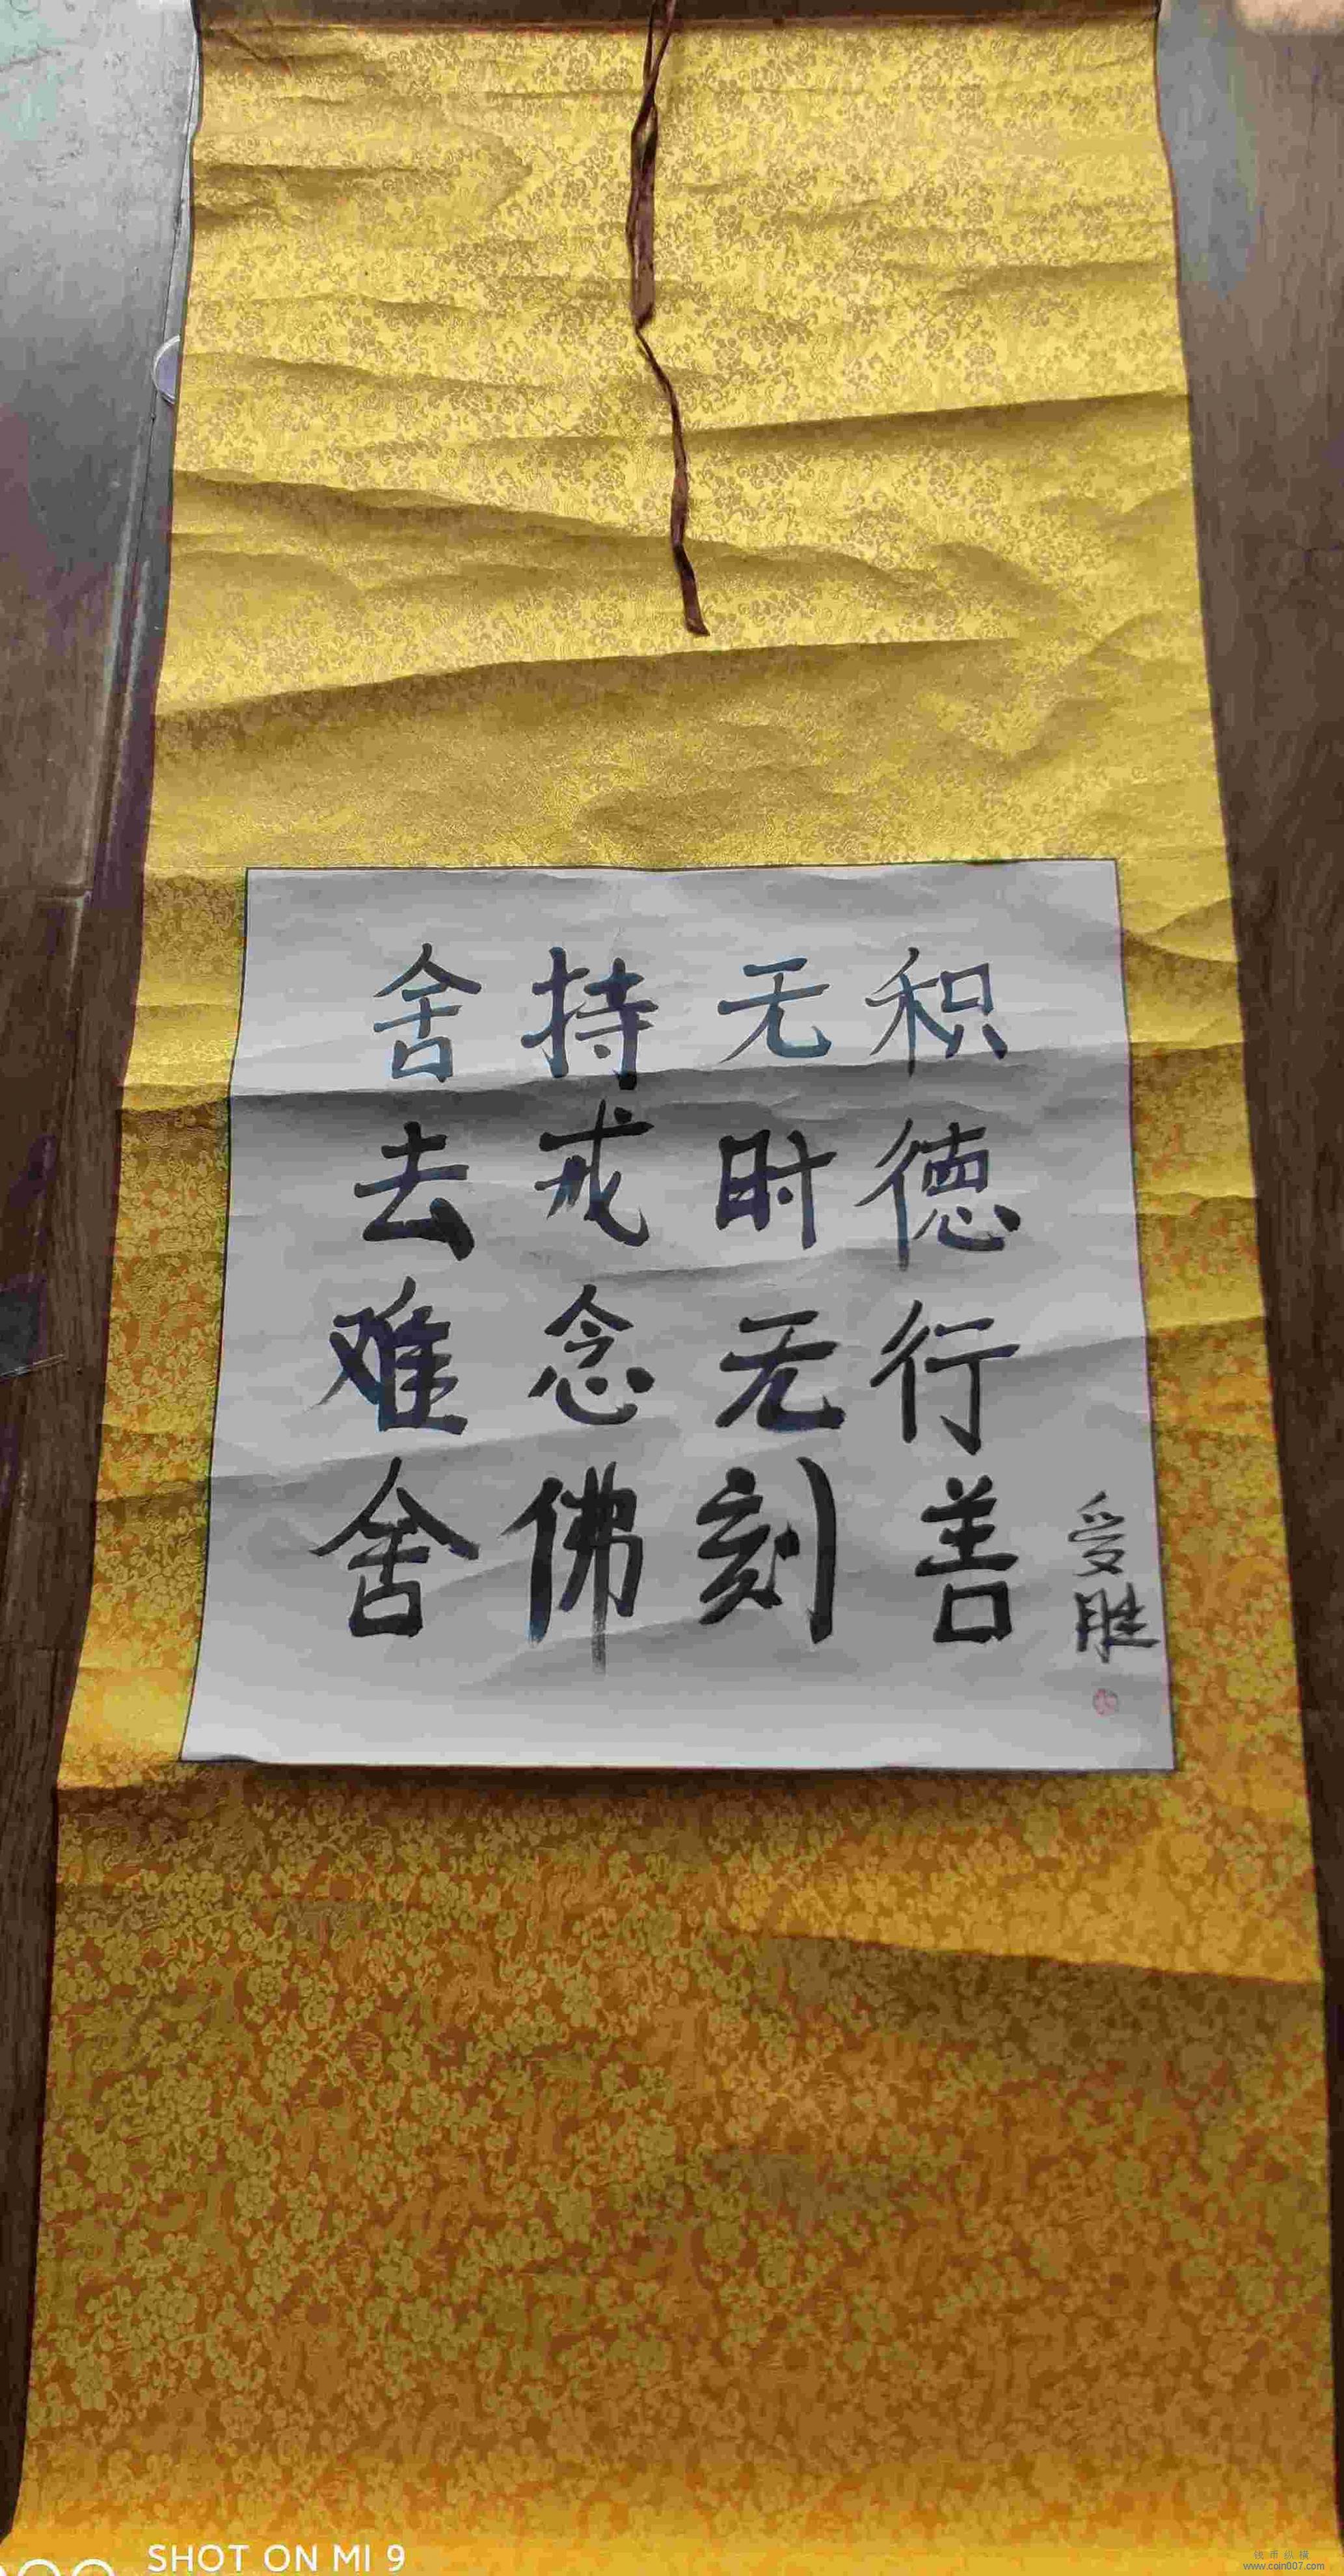 积德行善
无时无刻
持戒念佛
舍去难舍
受胜
SHOT ON MI 9
钱币纵横
www.coin007.com